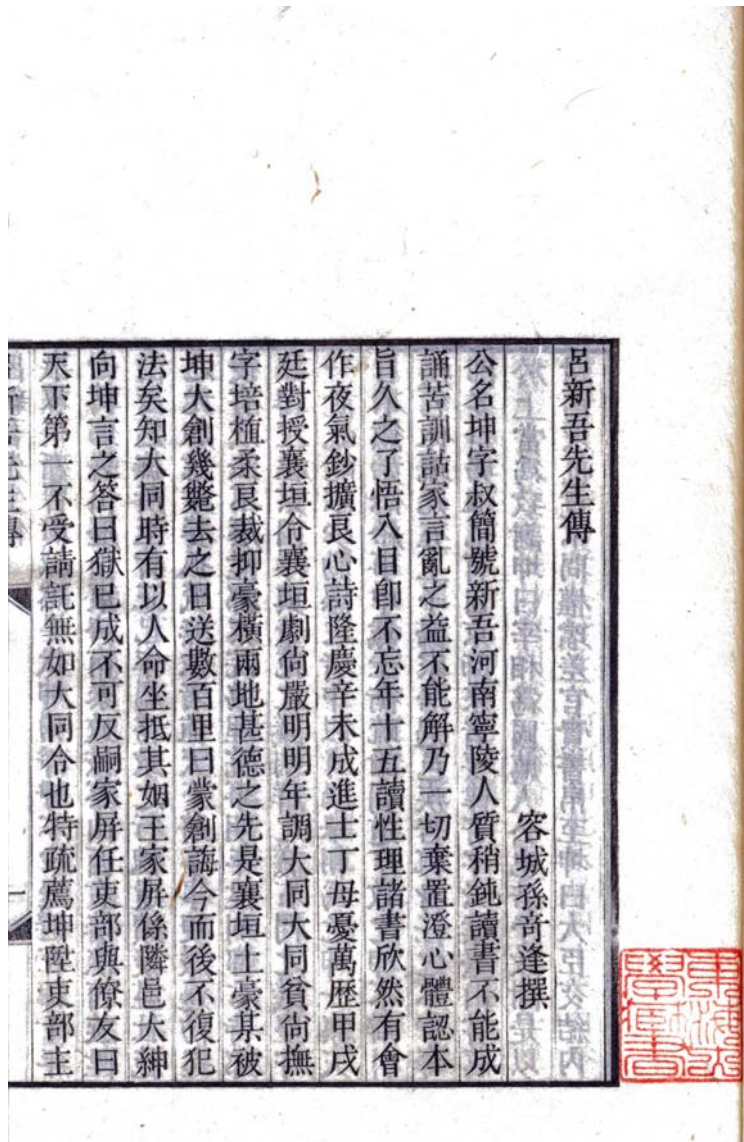 呂新吾先生傳
容城孫奇逢撰
公名坤字叔簡號新吾河南寧陵人質稍鈍讀書不能成
誦苦訓詁家言亂之益不能解乃一切棄置澄心體認本
旨久之了悟入目卽不忘年十五讀性理諸書欣然有會
作夜氣鈔擴良心詩隆慶辛未成進士丁母憂萬歷甲戌
廷對授襄垣令襄垣劇尙嚴明明年調大同大同貧尙撫
字培植柔良裁抑豪橫兩地甚德之先是襄垣土豪某被
坤大創幾斃去之日送數百里曰蒙創誨今而後不復犯
法矣知大同時有以人命坐抵其姻王家屏係隣邑大紳
向坤言之答曰獄已成不可反嗣家屏任吏部與僚友曰
天下第一不受請託無如大同令也特疏薦坤陞吏部主